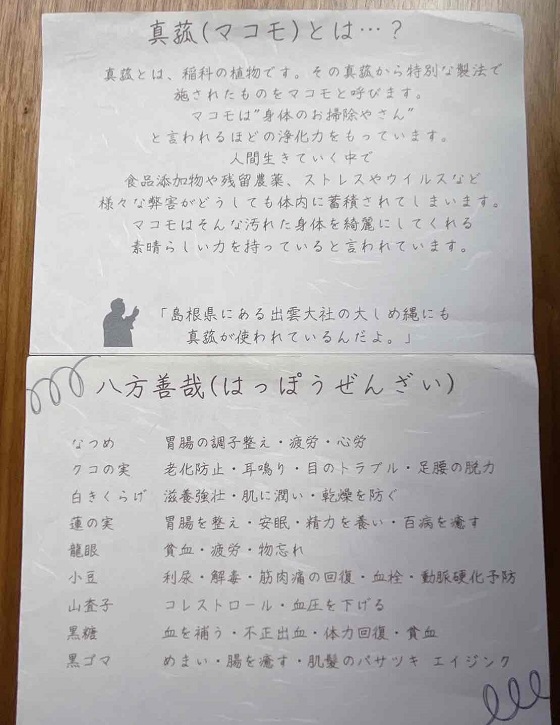 真菰(マコモ)とは…？
真菰とは、稲科の植物です。その真菰から特別な製法で
施されたものをマコモと呼びます。
マコモは"身体のお掃除やさん"
と言われるほどの浄化力をもっています。
人間生きていく中で
食品添加物や残留農薬、ストレスやウイルスなど
様々な弊害がどうしても体内に蓄積されてしまいます。
マコモはそんな汚れた身体を綺麗にしてくれる
素晴らしい力を持っていると言われています。
「島根県にある出雲大社の大しめ縄にも
真菰が使われているんだよ。」
八方善哉(はっぽうぜんざい)
なつめ 胃腸の調子整え・疲労・心労
クコの実 老化防止・耳鳴り・目のトラブル・足腰の脱力
白きくらげ 滋養強壮・肌に潤い・乾燥を防ぐ
蓮の実 胃腸を整え・安眠・精力を養い・百病を癒す
龍眼 貧血・疲労・物忘れ
小豆 利尿・解毒・筋肉痛の回復・血栓・動脈硬化予防
山査子 コレストロール・血圧を下げる
黒糖 血を補う・不正出血・体力回復・貧血
黒ゴマ めまい・腸を癒す・肌髪のパサツキ エイジング